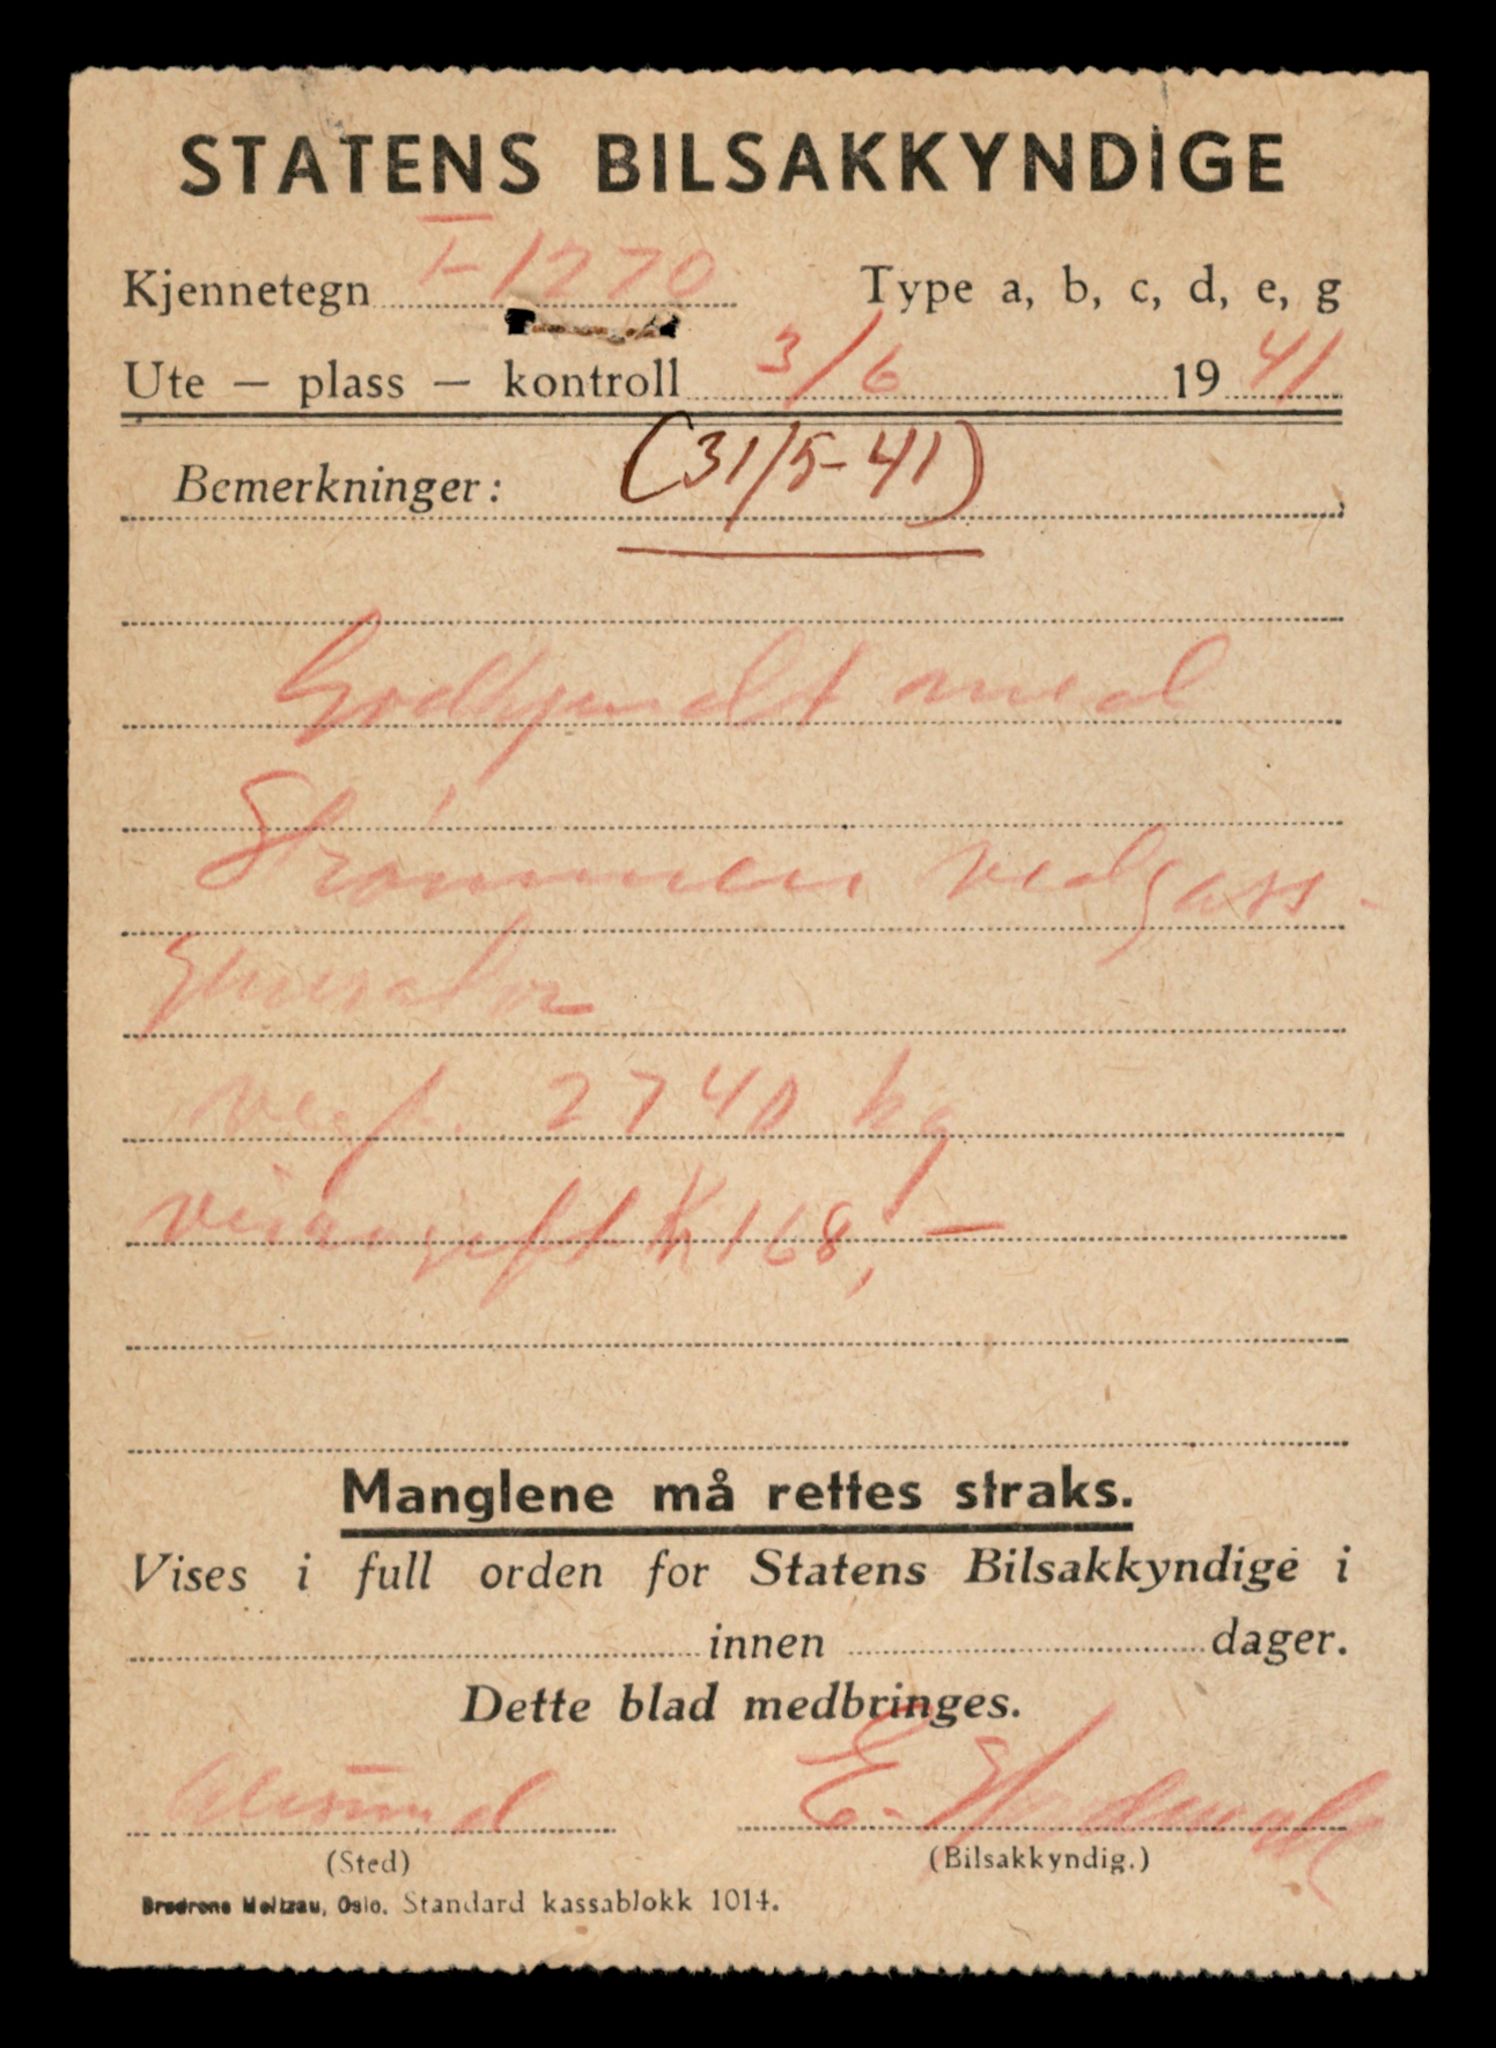 STATENS BILSAKKYNDIGE
Kjennetegn T-1270 Type a, b, c, d, e, g
Ute — plass — kontroll 3/6 1941
Bemerkninger: (31/5-41)
Godkjendt med
Strømmen vedgass-
generator
vegt. 2740 kg
Kr 168,-
Manglene må rettes straks.
Vises i full orden for Statens Bilsakkyndige i
innen dager.
Dette blad medbringes.
Ålesund E.
(Sted) (Bilsakkyndig.)
Brødrene Meltzau, Oslo. Standard kassablokk 1014.